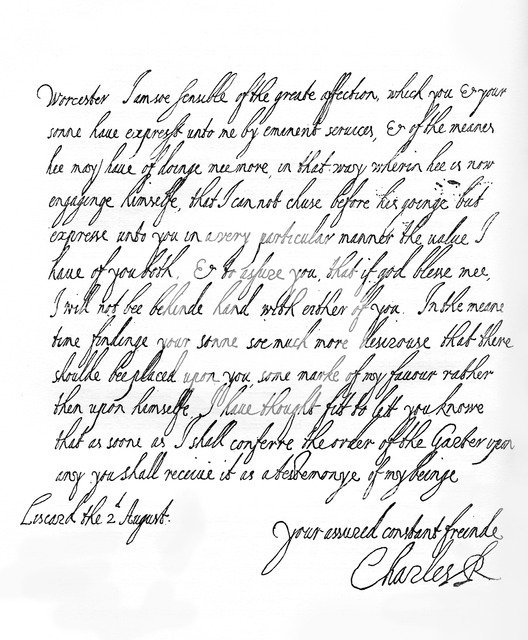 Worcester I am soe sensible of the greate affection, which you & your
sonne haue exprest unto me by eminent seruices, & of the meanes
hee may haue of doinge mee more, in that way wherin hee is now
engaginge himselfe, that I cannot chuse before his goinge but
expresse unto you in a very particular manner the value I
haue of you both, & to assure you, that if god blesse mee,
I will not bee behinde hand with either of you. In the meane
time findinge your sonne soe much more desirouse that there
shoulde bee placed upon you some marke of my fauour rather
then upon himselfe, I haue thought fitt to lett you knowe
that as soone as I shall conferre the order of the Garter upon
any you shall receiue it as a testemonye of my beinge
Your assured constant freinde
Liscard the 2d August.
Charles R